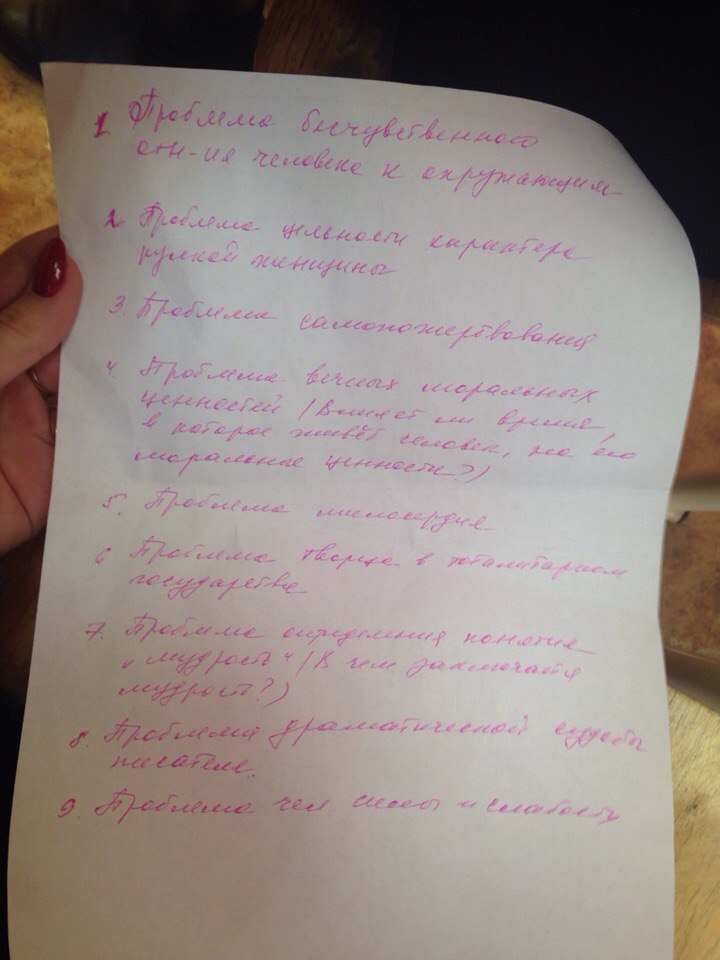 1. Проблема бесчувственного
отн-ия человека к окружающим
2. Проблема цельности характера
русской женщины
3. Проблема самопожертвования
4. Проблема вечных моральных
ценностей (Влияет ли время,
в которое живёт человек, на его
моральные ценности?)
5. Проблема милосердия
6 Проблема творца в тоталитарном
государстве
7. Проблема определения понятия
"мудрость" (В чем заключается
мудрость?)
8. Проблема драматической судьбы
писателя.
9. Проблема чел силы и слабости